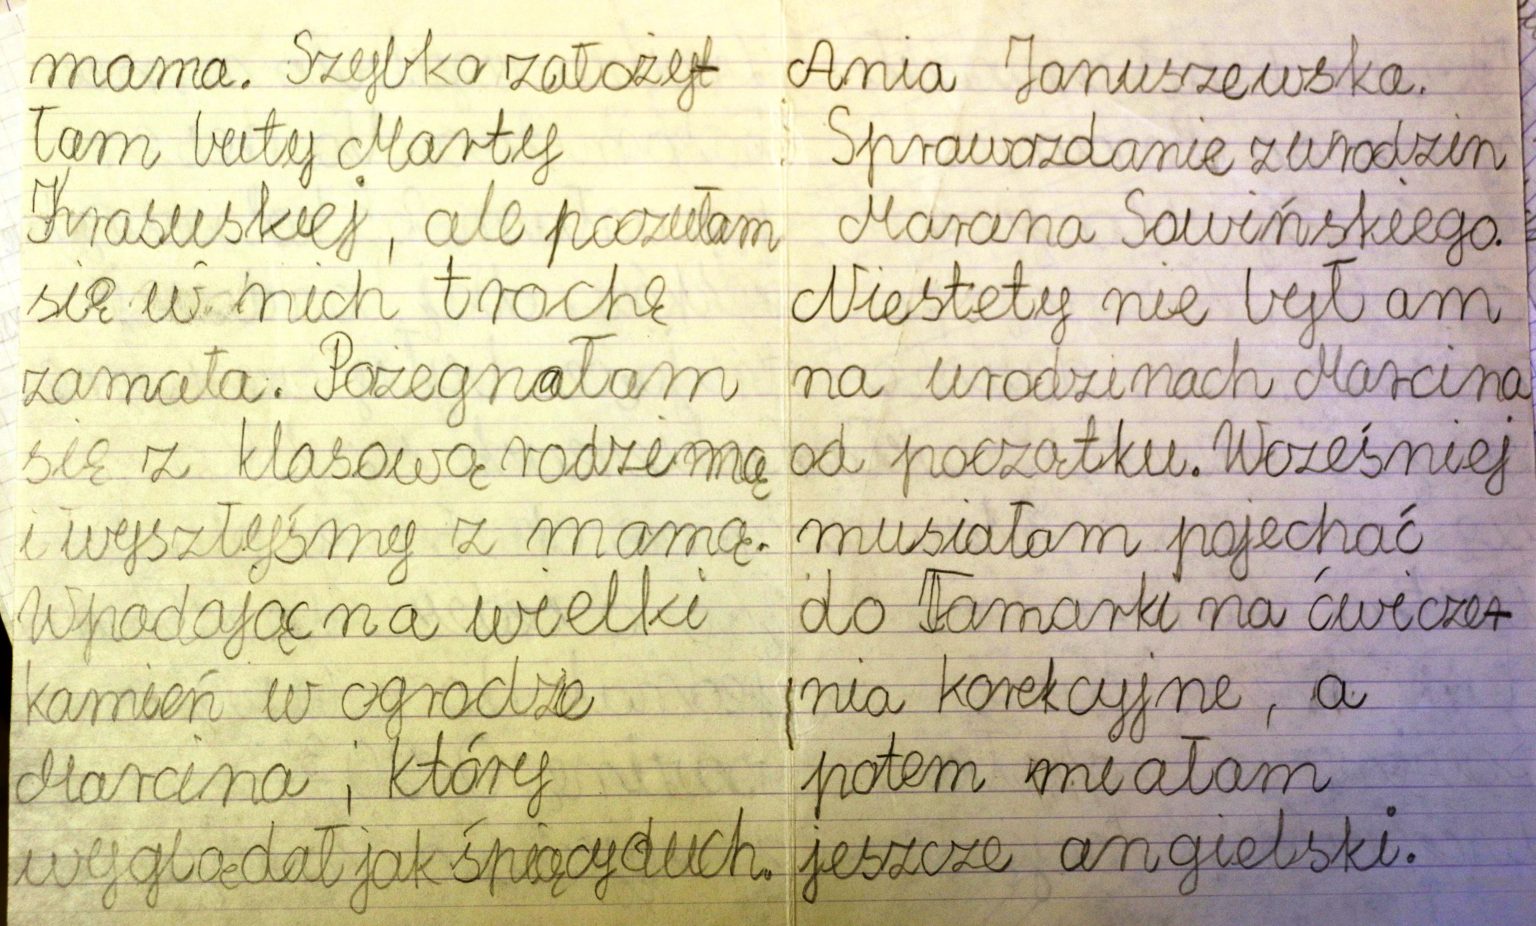 mama. Szybko założył
łam buty Marty
Krasuskiej, ale poczułam
się w nich trochę
zamała. Pożegnałam
się z klasową rodzinną
i wyszłyśmy z mamą.
Wpadając na wielki
kamień w ogrodze
Marcina, który
wyglądał jak śpiący duch.
Ania Januszewska.
Sprawozdanie z urodzin
Marcina Sawińskiego.
Niestety nie był am
na urodzinach Marcina
od początku. Wcześniej
musiałam pojechać
do Tamarki na ćwicze-
nia korekcyjne, a
potem miałam
jeszcze angielski.